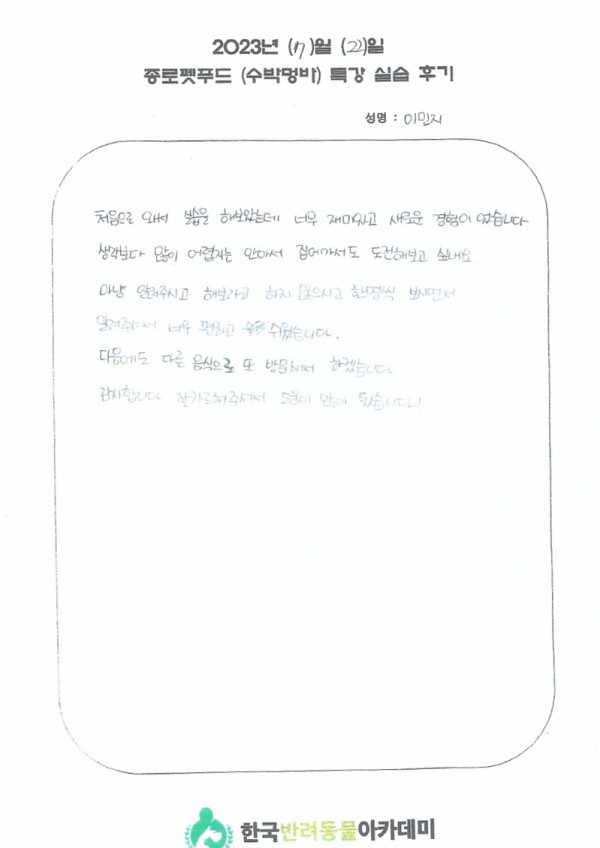 2023년 (7)월 (22)일
종로펫푸드 (수박멍바) 특강 실습 후기
성명 : 이민지
처음으로 와서 실습을 해보았는데 너무 재미있고 새로운 경험이 였습니다
생각보다 많이 어렵지는 안아서 집에가서도 도전해보고 싶내요
마냥 알려주시고 해보라고 하지 않으시고 한명씩 보시면서
알려주셔서 너무 편하고 쉬웠습니다.
다음에도 다른 음식으로 또 방문해서 하겠습니다
감사합니다 잘가르쳐주셔서 도움이 많이 됬습니다!
한국반려동물아카데미